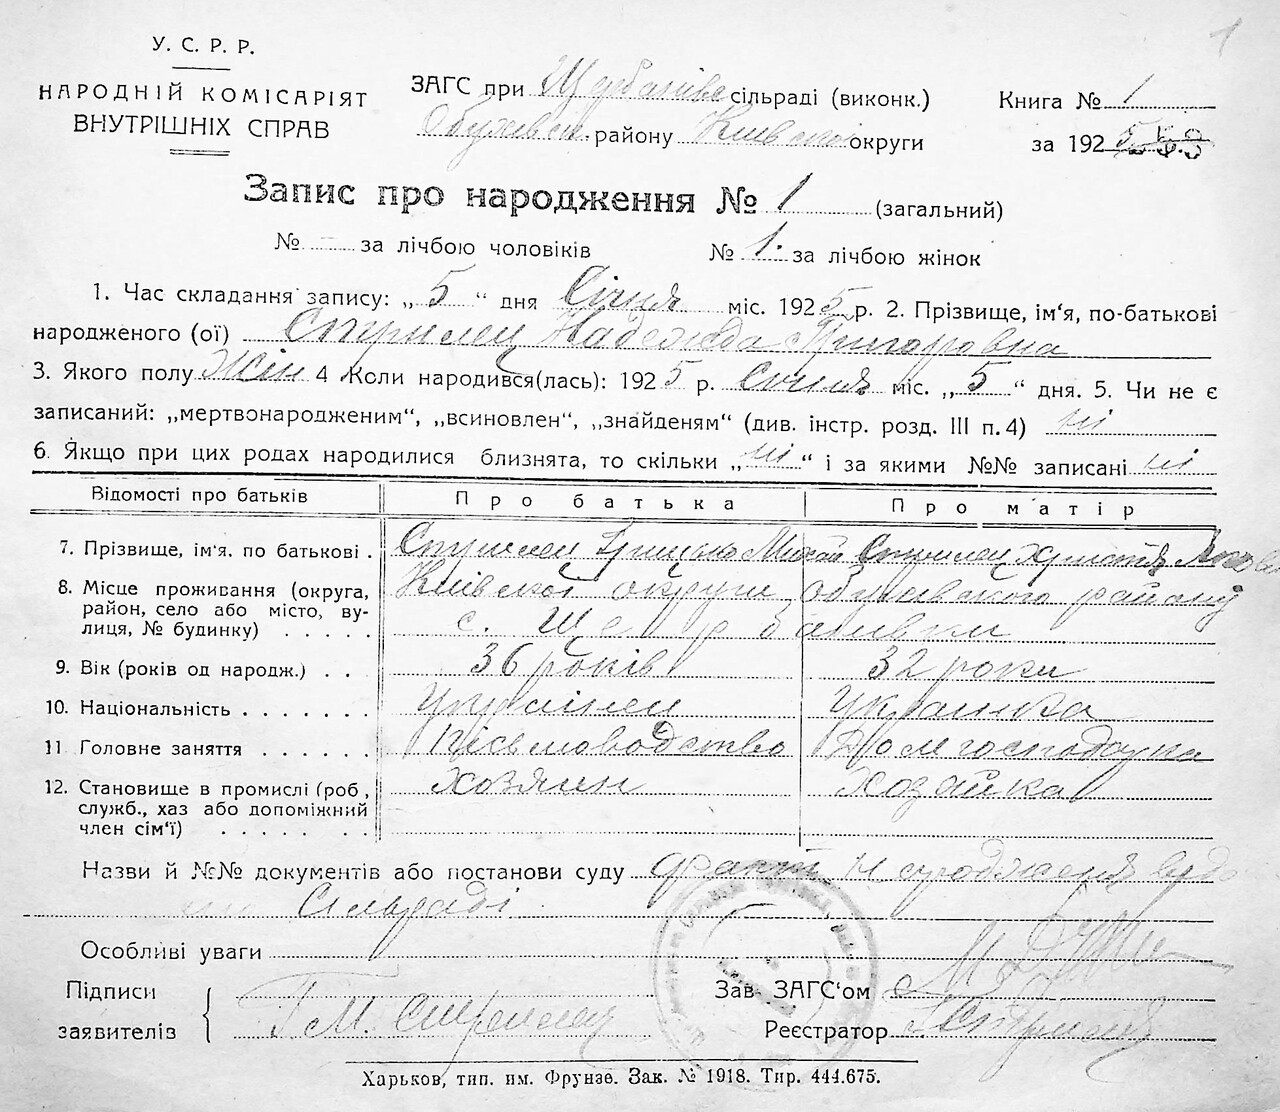 1
У. С. Р. Р.
НАРОДНІЙ КОМІСАРІЯТ
ВНУТРІШНІХ СПРАВ
ЗАГС при Щербанівс сільраді (виконк.)
Обухівськ району Київської округи
Книга № 1
за 1925
Запис про народження № 1 (загальний)
№ – за лічбою чоловіків № 1. за лічбою жінок
1. Час складання запису: „5“ дня Січня міс. 1925 р. 2. Прізвище, ім‘я, по-батькові
народженого (ої) Стрилец Надежда Григоровна
3. Якого полу Жін 4 Коли народився(лась): 1925 р. Січня міс. „5“ дня. 5. Чи не є
записаний: „мертвонародженим“, „всиновлен“, „знайденям“ (див. інстр. розд. III п.4) ні
6. Якщо при цих родах народилися близнята, то скільки „ні“ і за якими №№ записані ні
Відомості про батьків Про батька Про матір
7. Прізвище, ім‘я. по батькові . Стрилец Грицько Михай Стрилец Христя
8. Місце проживання (округа, Київської округи Обухівського району
район, село або місто, ву-
лиця, № будинку) . . . . . с. Щербанивки
9. Вік (років од народж.) . . 36 років 32 роки
10. Національність . . . . . . . Українец Украинка
11 Головне заняття . . . . . . Письмоводство Домогосподарка
12. Становище в промислі (роб, Хозяин Хозайка
служб., хаз або допоміжний
член сім‘ї) . . . . . . .
Назви й №№ документів або постанови суду факт народження
Сільраді
Особливі уваги
Підписи Зав. ЗАГС‘ом
заявителів Г. М. Стрилец Реєстратор Г Стрилец
Харьков, тип. им. Фрунзе. Зак. № 1918. Тир. 444.675.